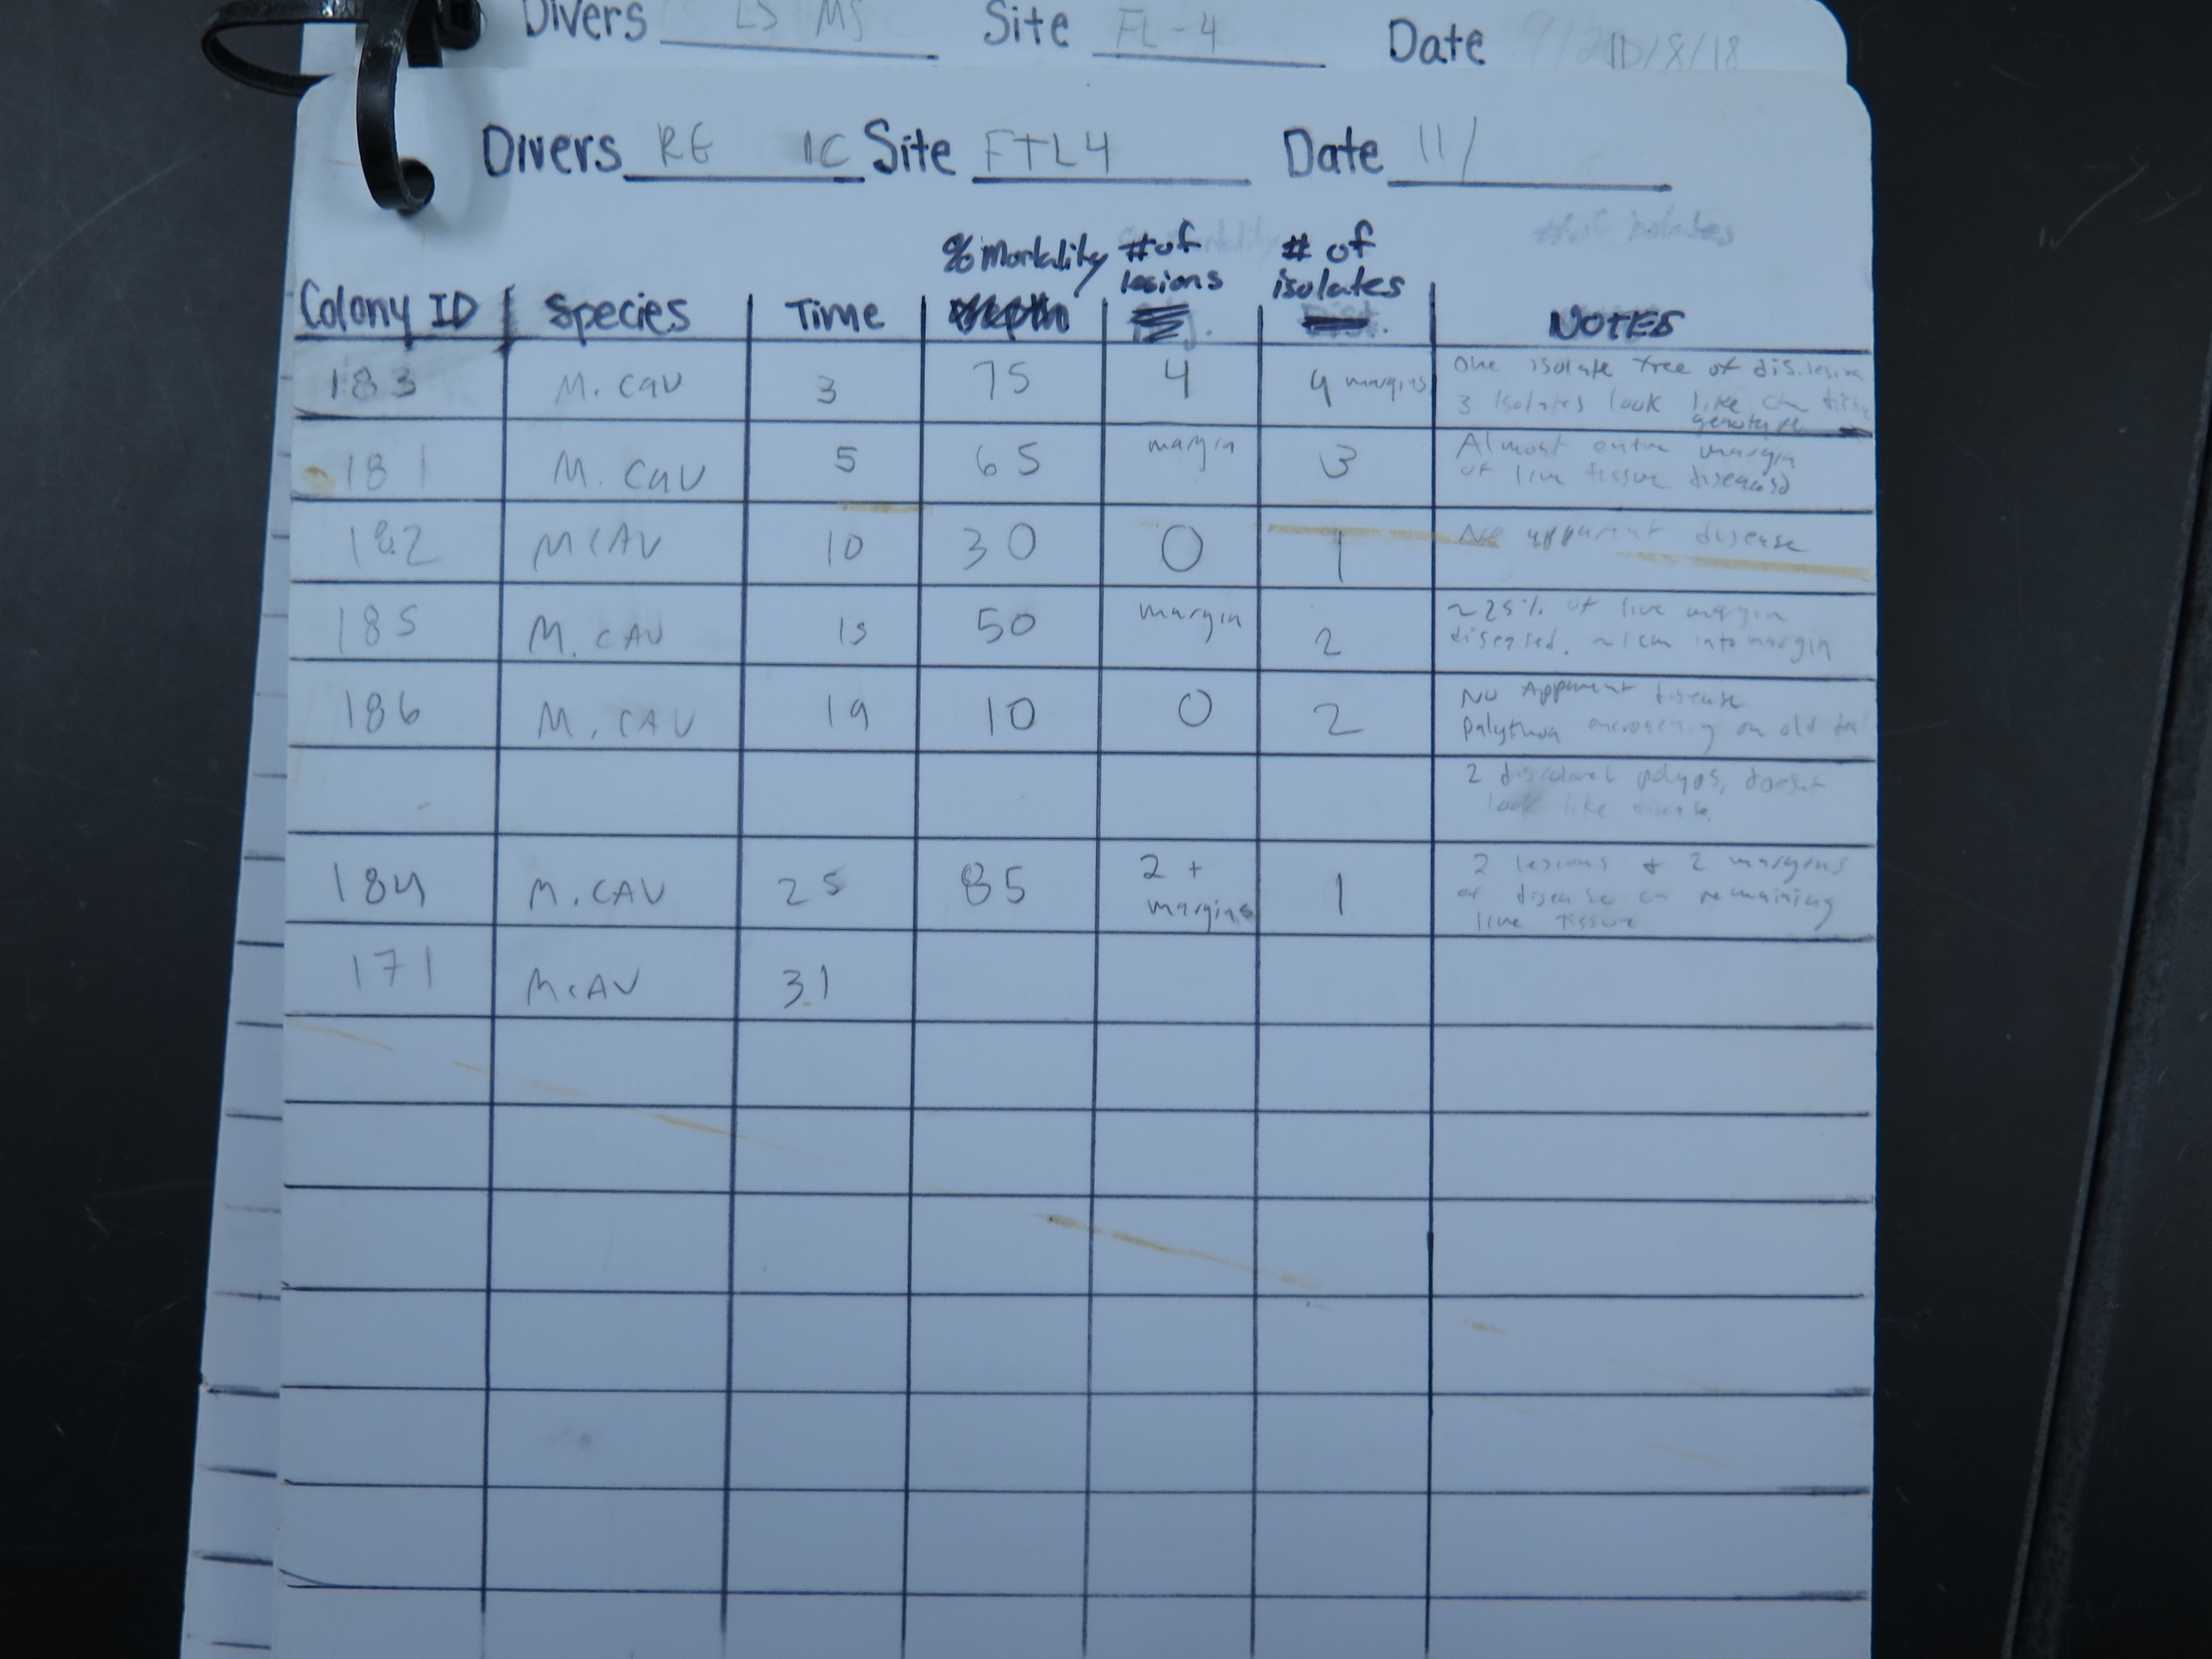 Divers Site FL-4 Date
Divers RG Site FTL4 Date 11/
% mortality # of lesions # of isolates
Colony ID Species Time NOTES
183 M. cav 3 75 4 4 margins one isolate free of dis. lesion
3 isolates look like
genotype
181 M. cav 5 65 margin 3 Almost entire margin
of live tissue diseased
182 MCAV 10 30 0 1 No apparent disease
185 M. CAV 15 50 margin 2 ~25% of live margin
diseased. into margin
186 M. CAV 19 10 0 2 No Apparent disease
palythoa on old
2 discolored polyps, doesnt
look like disease
184 M. CAV 25 85 2 + margins 1 2 lesions + 2 margins
of disease on remaining
live tissue
171 MCAV 31